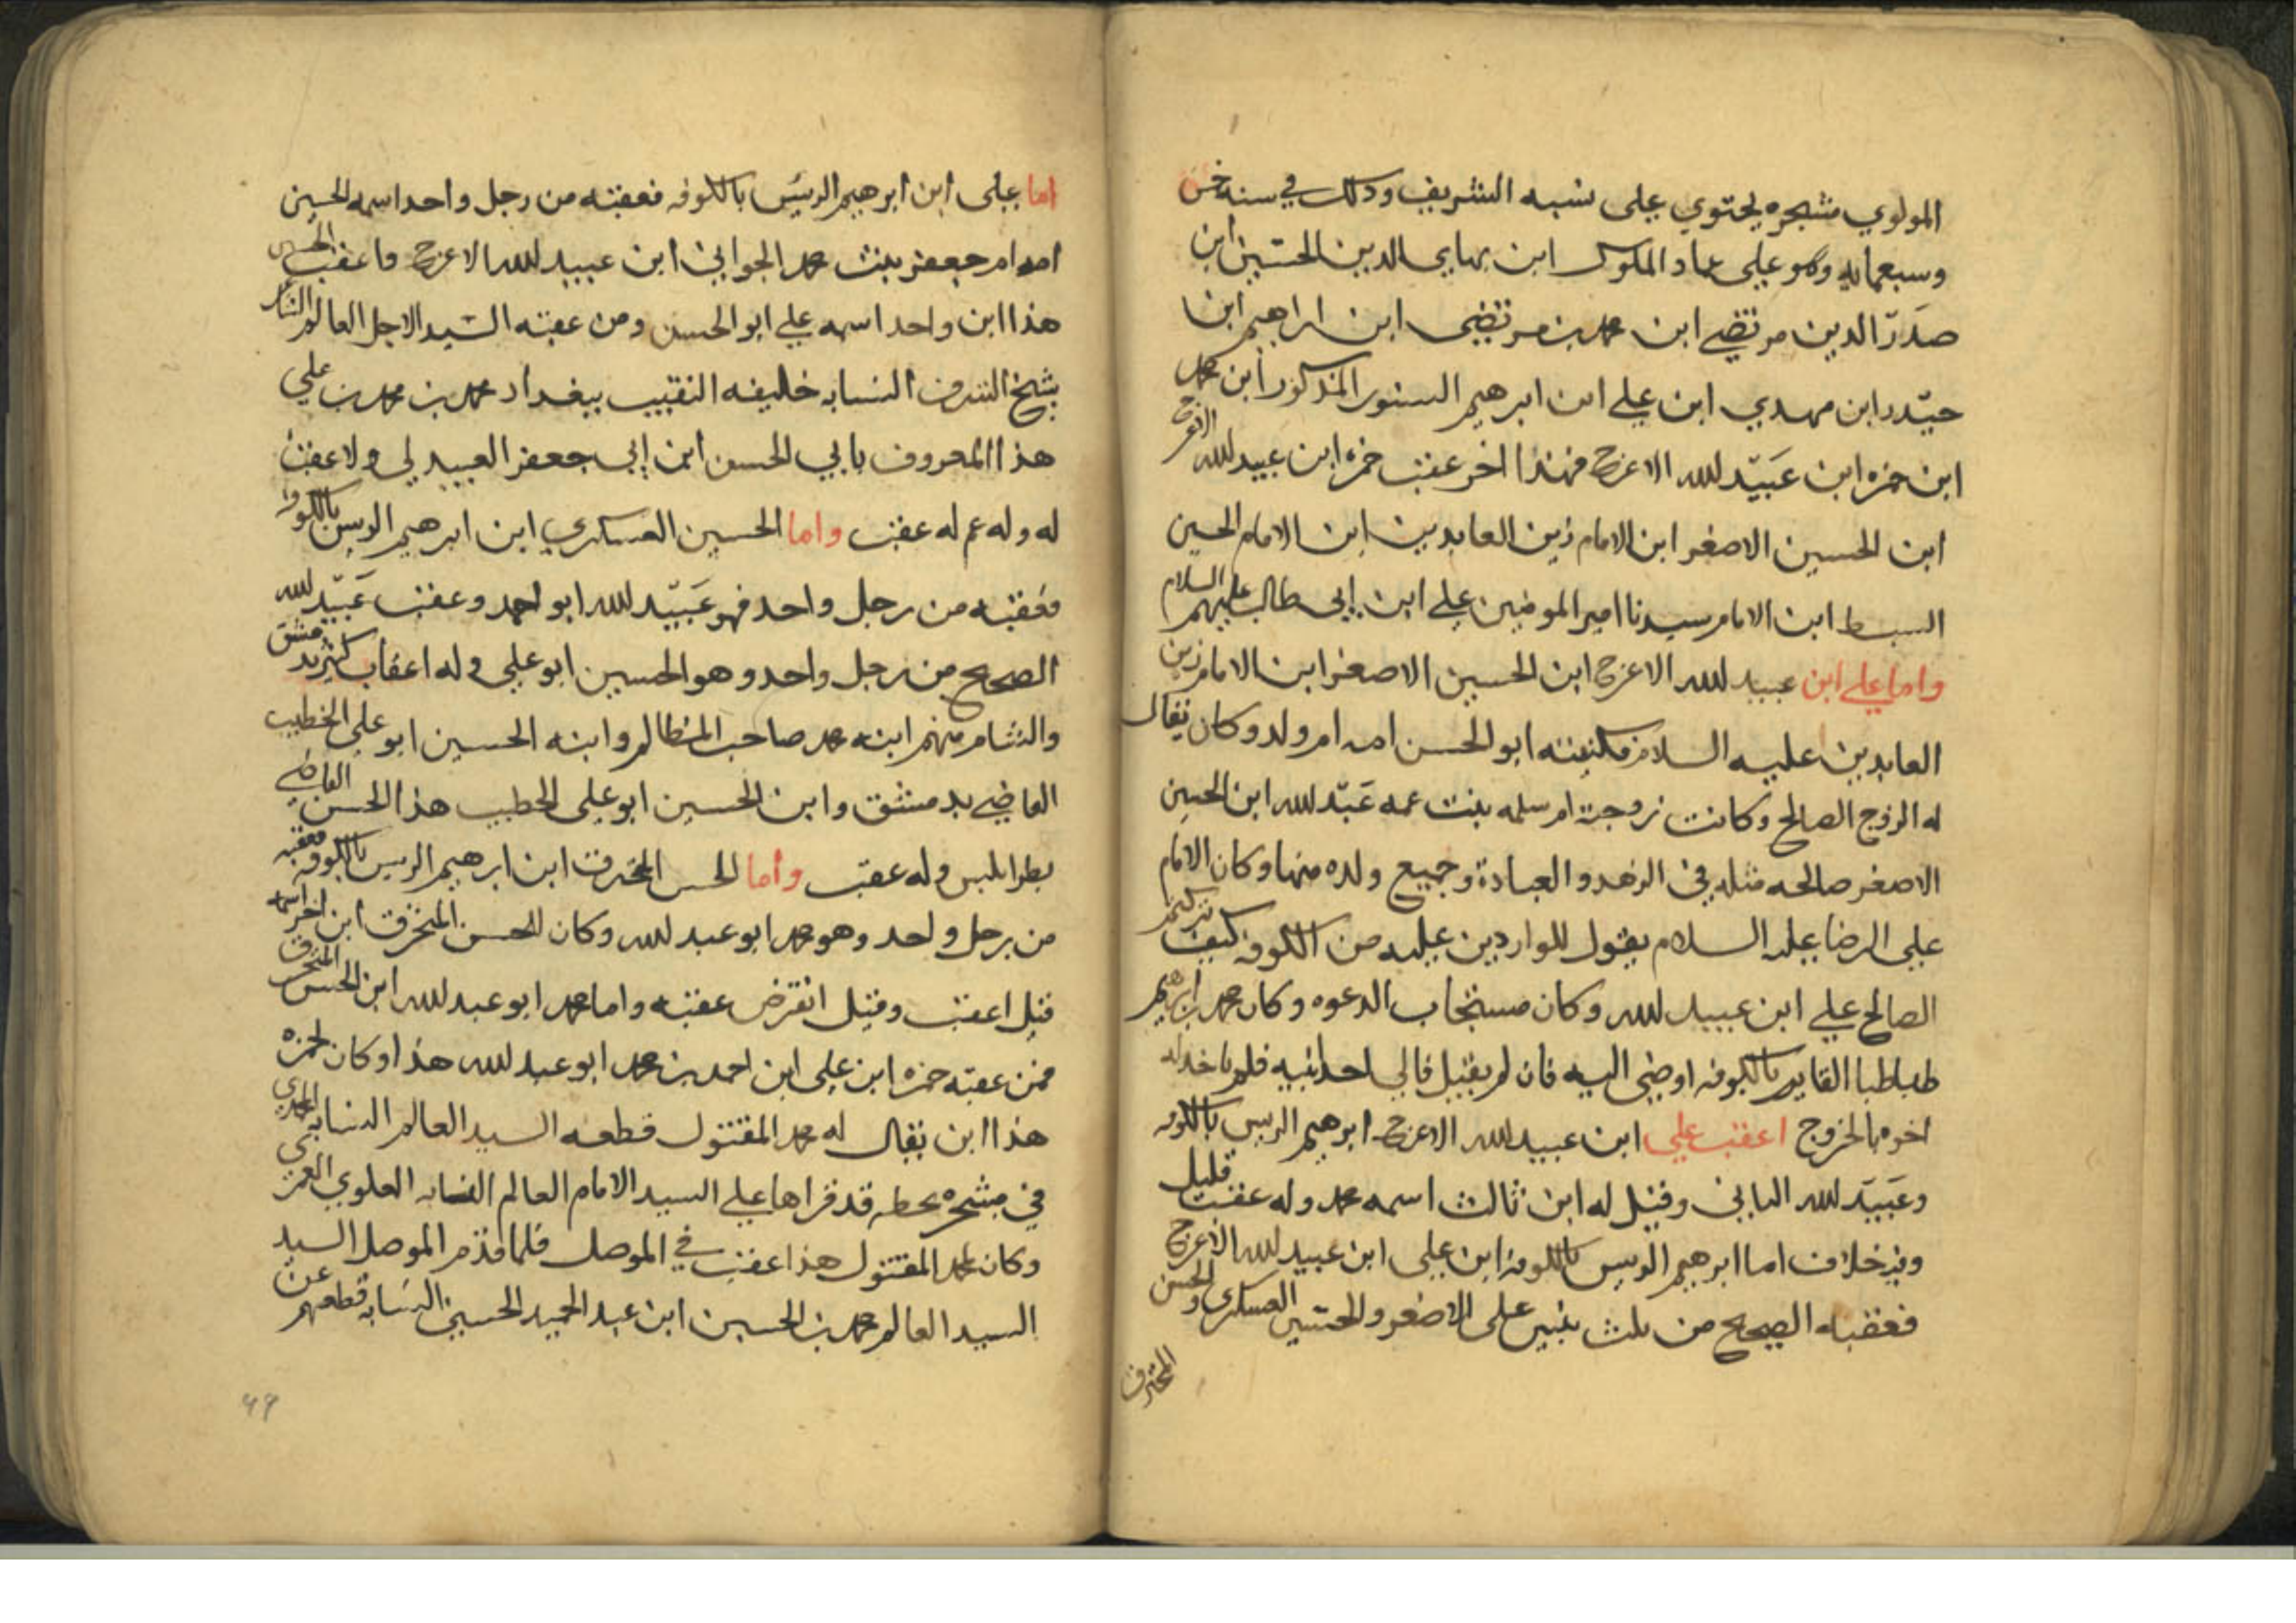 المولوي مشجره يحتوي على نسبه الشريف وذلك في سنه خمس
وسبعمايه وهو على عماد الملوك ابن بهاي الدين الحسين ابن
صدر الدين مرتضي ابن محمد بن مرتضى ابن ابراهيم ابن
حيدر ابن مهدي ابن علي ابن ابرهيم السنور المذكور ابن محمد
ابن حمزه ابن عبيد لله الاعرج فهذا اخر عقب حمزه ابن عبيد لله الاعرج
ابن الحسين الاصغر ابن الامام زين العابدين ابن الامام الحسين
السبط ابن الامام سيدنا امير المومنين علي ابن ابي طالب عليهم السلام
واما علي ابن عبيد لله الاعرج ابن الحسين الاصغر ابن الامام زين
العابدين عليه السلام فكنيته ابو الحسن امه ام ولد وكان يقال
له الزوج الصالح وكانت زوجته ام سلمه بنت عمه عبد لله ابن الحسين
الاصغر صالحه مثله في الزهد والعبادة وجميع ولده منها وكان الامام
علي الرضا عليه السلام يقول للواردين عليه من الكوفه كيف تركتم
الصالح علي ابن عبيد لله وكان مستجاب الدعوه وكان محمد ابن ابرهيم
طباطبا القايم بالكوفه اوصى اليه فان لم يقبل فالي احد ابنيه فلم ياخذ له
اخوه بالخروج اعقب علي ابن عبيد لله الاعرج ابرهيم الريس بالكوفه
وعبيد لله الثاني وقيل له ابن ثالث اسمه محمد وله عقب قليل
وفيه خلاف اما ابرهيم الريس بالكوفه ابن علي ابن عبيد لله الاعرج
فعقبه الصحيح من ثلث بنين علي الاصغر والحسين العسكري والحسن
المحترق
اما على ابن ابرهيم الرئيس بالكوفه فعقبه من رجل واحد اسمه الحسين
امه ام جعفر بنت محمد الجواني ابن عبيد لله الاعرج واعقب الحسين
هذا ابن واحد اسمه علي ابو الحسن ومن عقبه السيد الاجل العالم
شيخ الشرف النسابه خليفه النقيب ببغداد محمد بن محمد بن علي
هذا المعروف بابي الحسن ابن ابي جعفر العبيدلي ولا عقب
له وله عم له عقب واما الحسين العسكري ابن ابرهيم الريس بالكوفه
فعقبه من رجل واحد فهو عبيد لله ابو احمد وعقب عبيد لله
الصحيح من رجل واحد وهو الحسين ابو علي وله اعقاب كثير بدمشق
والشام منهم ابنه محمد صاحب المظالم وابنه الحسين ابو علي الخطيب
القاضي بدمشق وابن الحسين ابو علي الخطيب هذا الحسن القاضي
بطرابلس وله عقب واما الحسن المحترق ابن ابرهيم الريس بالكوفه فعقبه
من رجل واحد وهو محمد ابو عبد لله وكان للحسن المحترق ابن اخر اسمه
قيل اعقب وقيل انقرض عقبه واما محمد ابو عبد لله ابن الحسن المحترق
فمن عقبه حمزه ابن علي ابن احمد بن محمد ابو عبد لله هذا وكان لحمزه
هذا ابن يقال له محمد المقتول قطعه السيد العالم النسابه
في مشجره بخطه قد قراها علي السيد الامام العالم النسابه العلوي العمري
وكان لمحمد المقتول هذا عقب في الموصل فلما قدم الموصل السيد
السيد العالم محمد بن الحسين ابن عبد الحميد الحسيني النسابه قطعهم عن